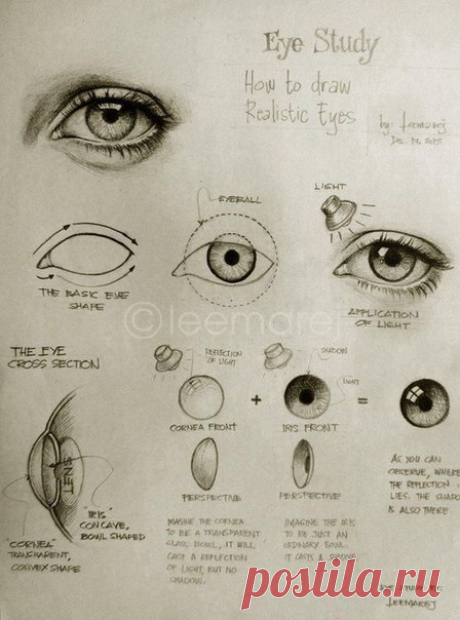 Eye Study
How to draw
Realistic Eyes
by: leemarej
LIGHT
EYEBALL
THE BASIC EYE
SHAPE
APPLICATION
OF LIGHT
©leemarej
THE EYE
CROSS SECTION
REFLECTION
OF LIGHT
SHADOW
LIGHT
+
=
CORNEA FRONT
IRIS FRONT
LENS
PERSPECTIVE
PERSPECTIVE
AS YOU CAN
OBSERVE, WHERE
THE REFLECTION
LIES. THE SHADOW
IS ALSO THERE
"IRIS"
CONCAVE,
BOWL SHAPED
"CORNEA"
TRANSPARENT,
CONVEX SHAPE
IMAGINE THE CORNEA
TO BE A TRANSPARENT
GLASS BOWL, IT WILL
CAST A REFLECTION
OF LIGHT, BUT NO
SHADOW.
IMAGINE THE IRIS
TO BE JUST AN
ORDINARY BOWL.
IT CASTS A
postila.ru
LEEMAREJ